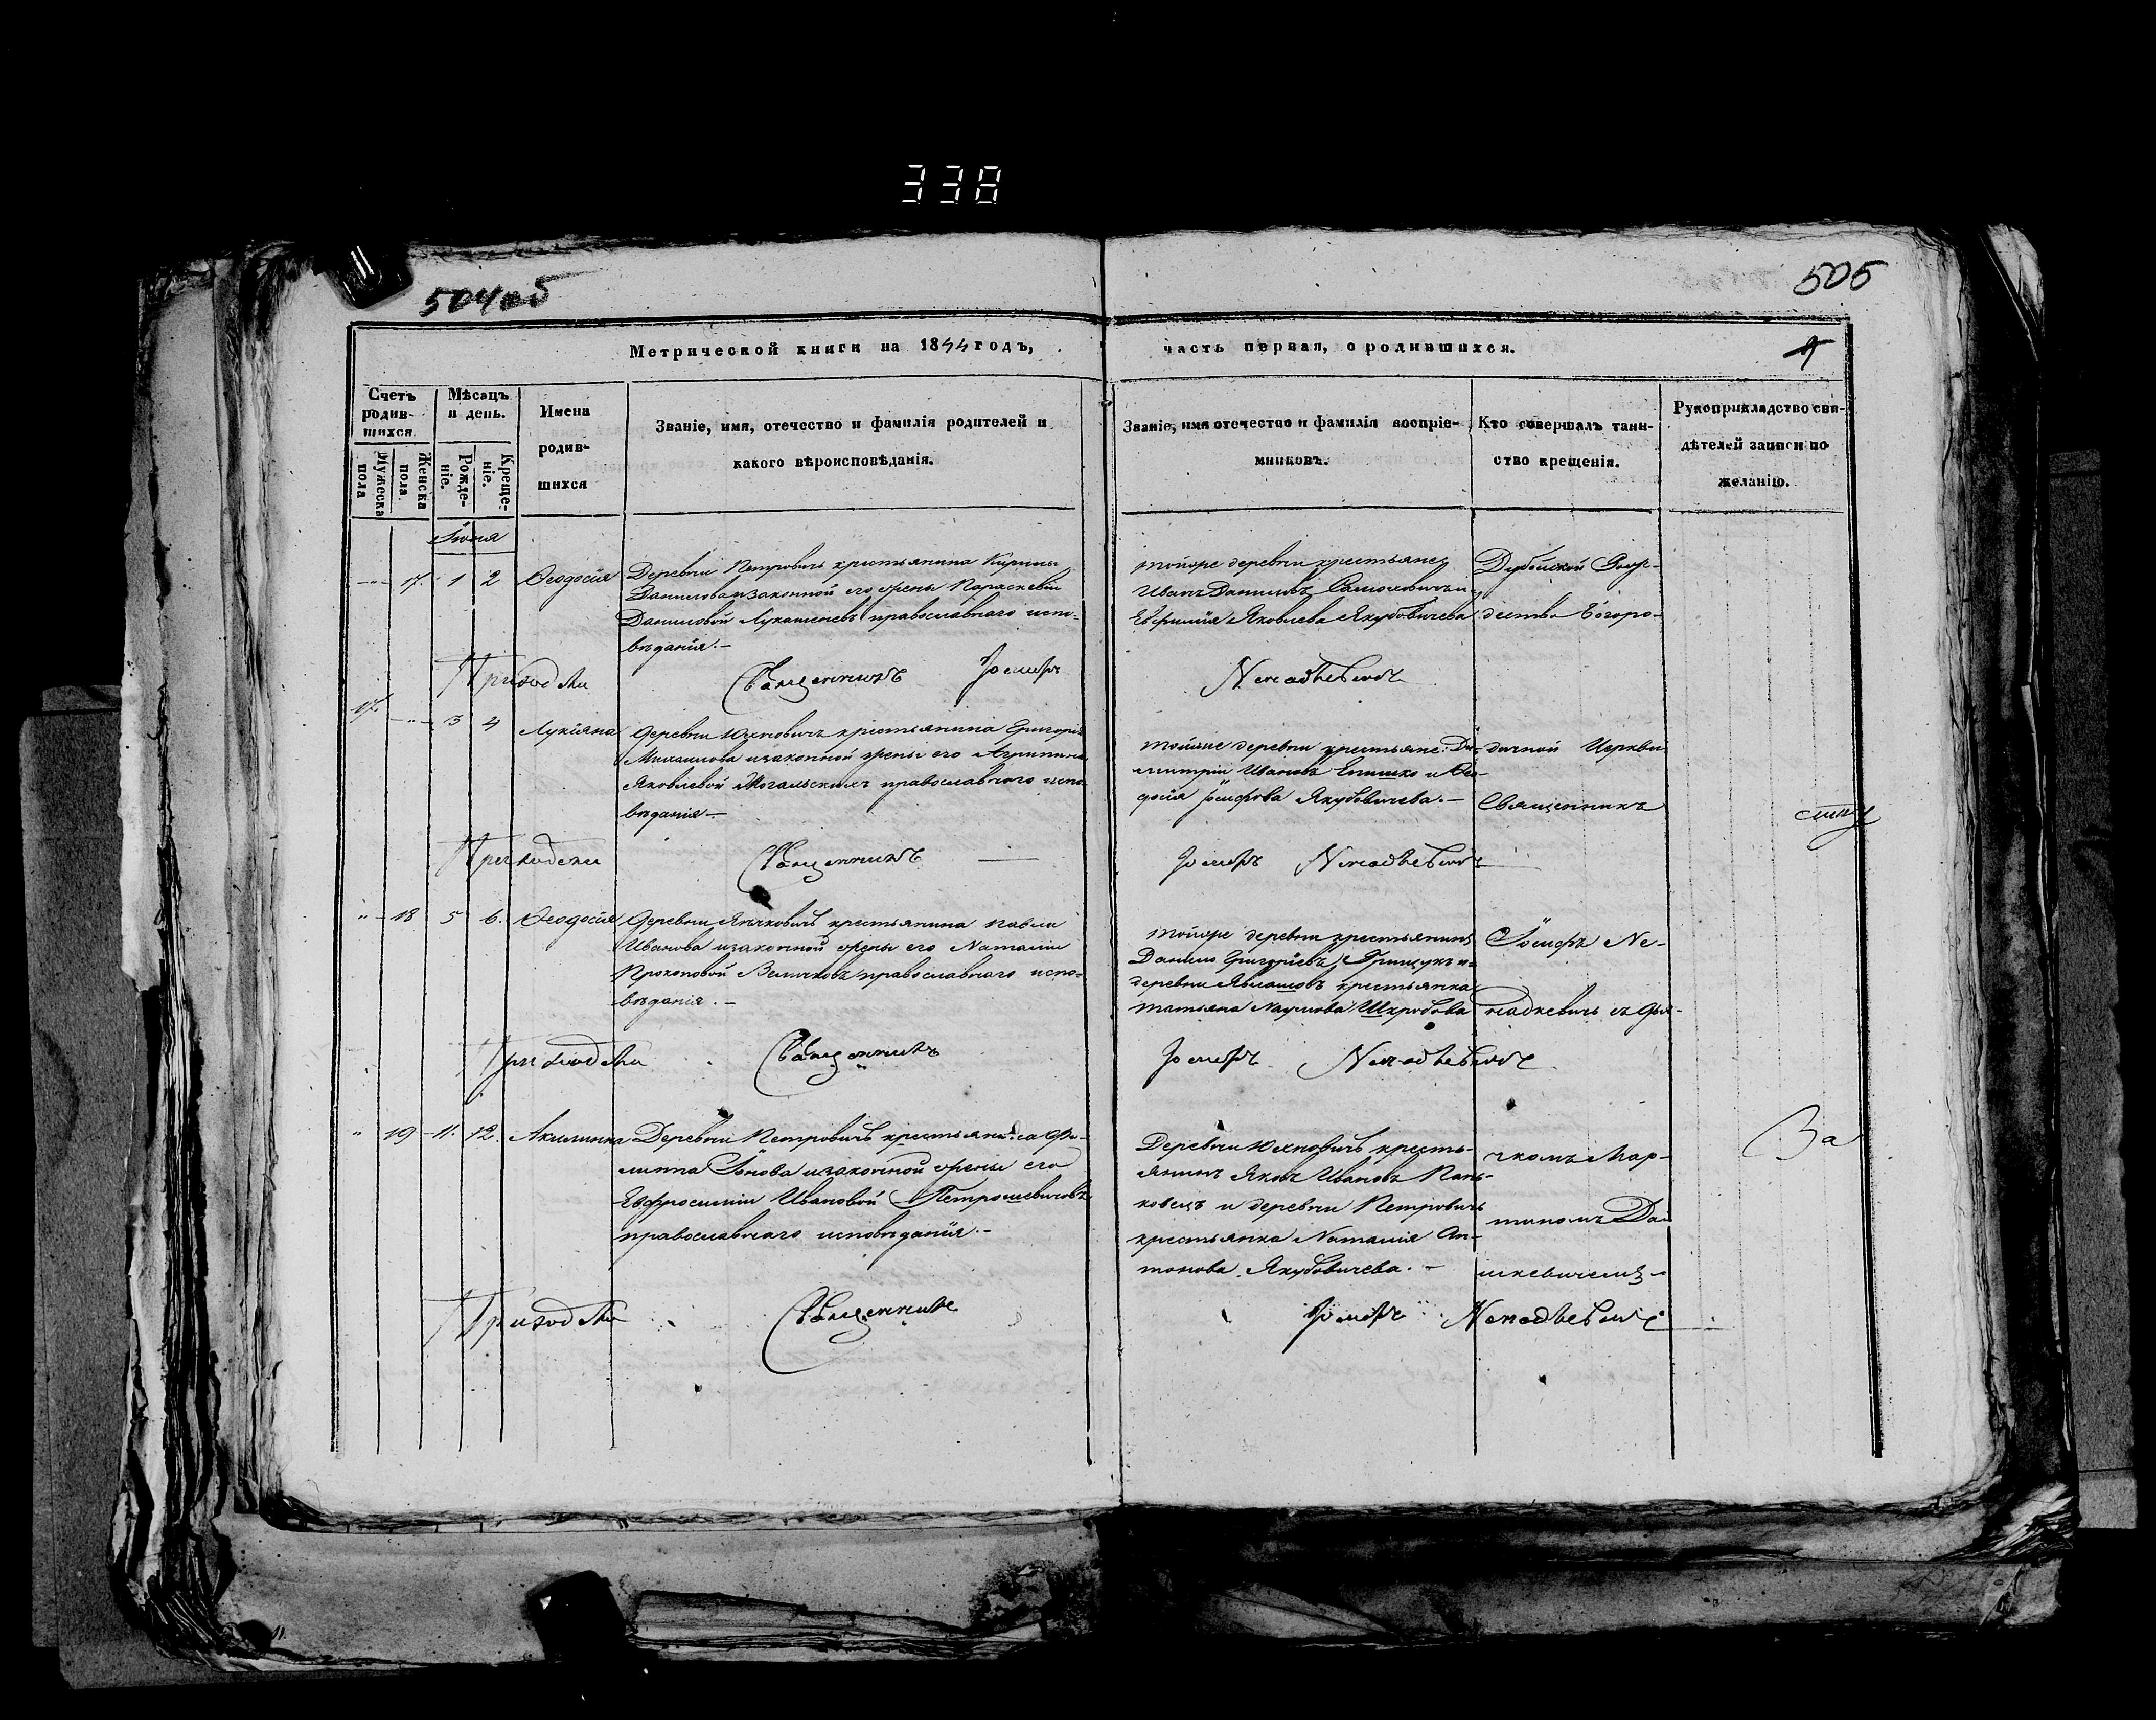 338
504об
505
Метрической книги на 1844 годъ,
часть первая, о родившихся.
Счетъ родив-шихся.
Мужеска пола
Женска пола.
Мѣсяцъ и день.
Рожде-ніе.
Креще-ніе.
Имена родив-шихся
Званіе, имя, отечество и фамилія родителей и
какого вѣроисповѣданія.
Званіе, имя отечество и фамилія воспріе-
мниковъ.
Кто совершалъ таин-
ство крещенія.
Рукоприкладство сви-
дѣтелей записи по
желанію.
Іюня
17. 1 2 Ѳеодосія
Деревни Петровичъ крестьянина
Данилова и законной его жены Параскевіи
Даниловой Лукашевъ православнаго испо-
вѣданія.-
тойже деревни крестьяне
Иванъ Даниловъ
Евфимія Яковлева Якубовичева
Дубойской Рож-
дества Богоро-
Приходскій Священникъ Іосифъ Ненадкевичъ
17. 3 4 Лукіянъ
деревни Юхновичъ крестьянина Григорія
Михаилова и законной жены его Агрипины
Яковлевой Могальскихъ православнаго испо-
вѣданія-
тойже деревни крестьяне: Ди-
митрій Ивановъ Епишко и Ѳео-
досія Іосифова Якубовичева.-
дичной Церкви
Священникъ
Приходскій Священникъ
Іосифъ Ненадкевичъ
18 5 6. Ѳеодосія
деревни крестьянина Павла
Иванова и законной жены его Наталіи
Прокоповой Величковъ православнаго испо-
вѣданія.-
тойже деревни крестьянинъ
Данило Григоріевъ Грицукъ и
деревни крестьянка
Татьяна Наумова Шкробова
Іосифъ Не-
надкевичъ съ Дья-
Приходскій Священникъ
Іосифъ Ненадкевичъ
19 11. 12. Акилина
Деревни Петровичъ крестьянина Фи-
липпа Іонова и законной жены его
Евфросиніи Ивановой Петрошевичовъ
православнаго исповѣданія.-
Деревни Юхновичъ кресть-
янинъ Яковъ Ивановъ Пань-
ковецъ и деревни Петровичъ
крестьянка Наталія Ан-
тонова Якубовичева.-
чкомъ Мар-
тиномъ Да-
шкевичемъ-
За
Приходскій Священникъ
Іосифъ Ненадкевичъ